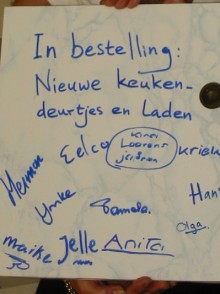 In bestelling:
Nieuwe keuken-
deurtjes en Laden
Eelco
Laurens
Herman
Ymke
Pamela.
Olga.
Maike
Jelle
Anita